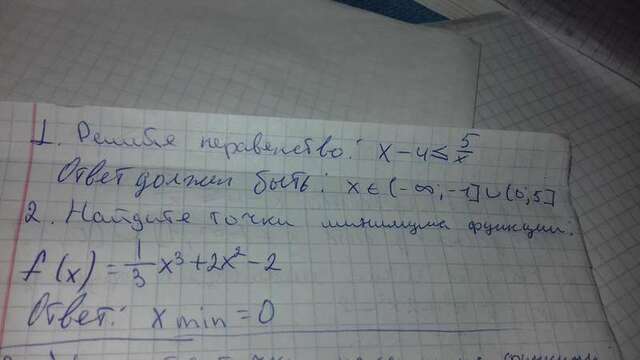 1. Решите неравенство: x - 4 ≤ 5/x
Ответ должен быть: x ∈ (-∞; -1] ∪ (0; 5]
2. Найдите точки минимума функции.
f(x) = 1/3 x³ + 2x² - 2
Ответ: x min = 0